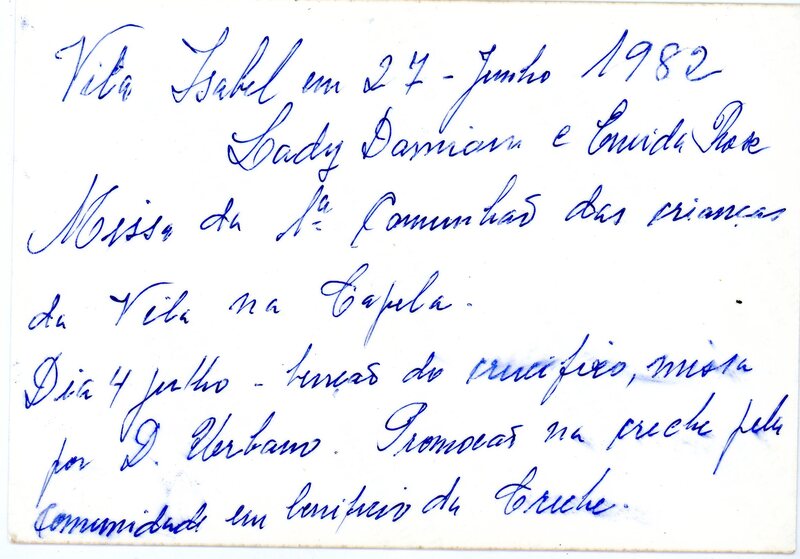 Vila Isabel em 27 - Junho 1982
Lady Damiani e Eneida Rose
Missa da 1ª Comunhão das crianças
da Vila na Capela.
Dia 4 julho - benção do crucifixo, missa
por D. Urbano. Promoção na creche pela
Comunidade em benificio da Creche.